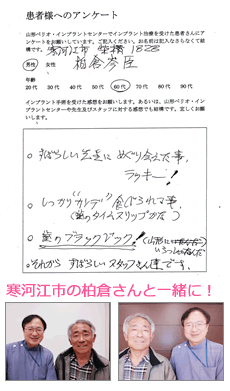 患者様へのアンケート
山形ペリオ・インプラントセンターでインプラント治療を受けた患者さんにア
ンケートをお願いしています。ご記入ください。お名前は記入なさらなくて結
構です。
寒河江市
柏倉
男性 女性
年齢
20代 30代 40代 50代 60代 70代 80代 90代
インプラント手術を受けた感想をお願いします。あるいは、山形ペリオ・イン
プラントセンターや先生及びスタッフに対する感想でも結構です。宜しくお願
いします。
○すばらしい先生にめぐり会えた事、
ラッキー!
○しっかり"カンデ"食べられる事、
(歯のタイムスリップかな)
○歯のブラックジック!(山形には
○それから すばらしいスタッフさん達です。
寒河江市の柏倉さんと一緒に!